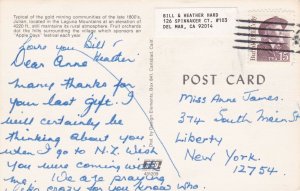 Typical of the gold mining communities of the late 1800's
Julian, located in the Laguna Mountains at an elevation of
4220 ft., still maintains its rural atmosphere. Fruit orchards
dot the hills surrounding the village which sponsors an
"Apple Days" festival each year.
Love you Bill
Heather
Dear Anne
Many thanks for
your last gift. I
will certainly be
thinking about you
when I go to N.Z. Wish
you were coming with
me! (We are praying
like crazy for you know who.
BILL & HEATHER HARD
126 SPINNAKER CT. #103
DEL MAR, CA 92014
USA 15c
POST CARD
Miss Anne James.
374 South Main St
Liberty
New York.
12754